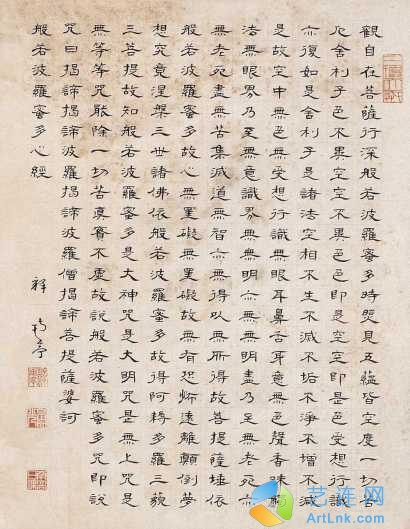 觀自在菩薩行深般若波羅蜜多時照見五蘊皆空度一切苦
厄舍利子色不異空空不異色色即是空空即是色受想行識
亦復如是舍利子是諸法空相不生不滅不垢不淨不增不減
是故空中無色無受想行識無眼耳鼻舌身意無色聲香味觸
法無眼界乃至無意識界無無明亦無無明盡乃至無老死亦
無老死盡無苦集滅道無智亦無得以無所得故菩提薩埵依
般若波羅蜜多故心無罣礙無罣礙故無有恐怖遠離顛倒夢
想究竟涅槃三世諸佛依般若波羅蜜多故得阿耨多羅三藐
三菩提故知般若波羅蜜多是大神咒是大明咒是無上咒是
無等等咒能除一切苦真實不虛故說般若波羅蜜多咒即說
咒曰揭諦揭諦波羅揭諦波羅僧揭諦菩提薩婆訶
般若波羅蜜多心經
釋
艺连网
ArtLnk.cn